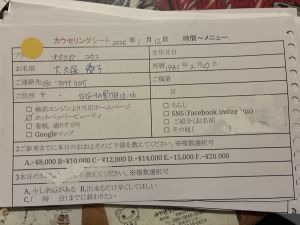 カウセリングシート 2020年 1月 12日 時間〜メニュー
お名前
生年月日
西暦1981年2月27日
ご連絡先
ご職業
ご住所 〒
区
□検索エンジンより当店ホームページ
☑ホットペッパービューティ
□看板、通りすがり
□Googleマップ
□ちらし
□SNS(Facebook.instagram)
□ご紹介(お名前
□その他(
2ご参考までに本日のおおよそのご予算を教えてください。※複数選択可
A.~¥8,000 B-¥10,000 C-¥12,000 D-¥14,000 E.-15,000 F.-¥20,000
3本日の 教えてください。※複数選択可
A,少し余裕がある B,出来るだけ早くしてほしい
C,( 時 分)までに終わりたい